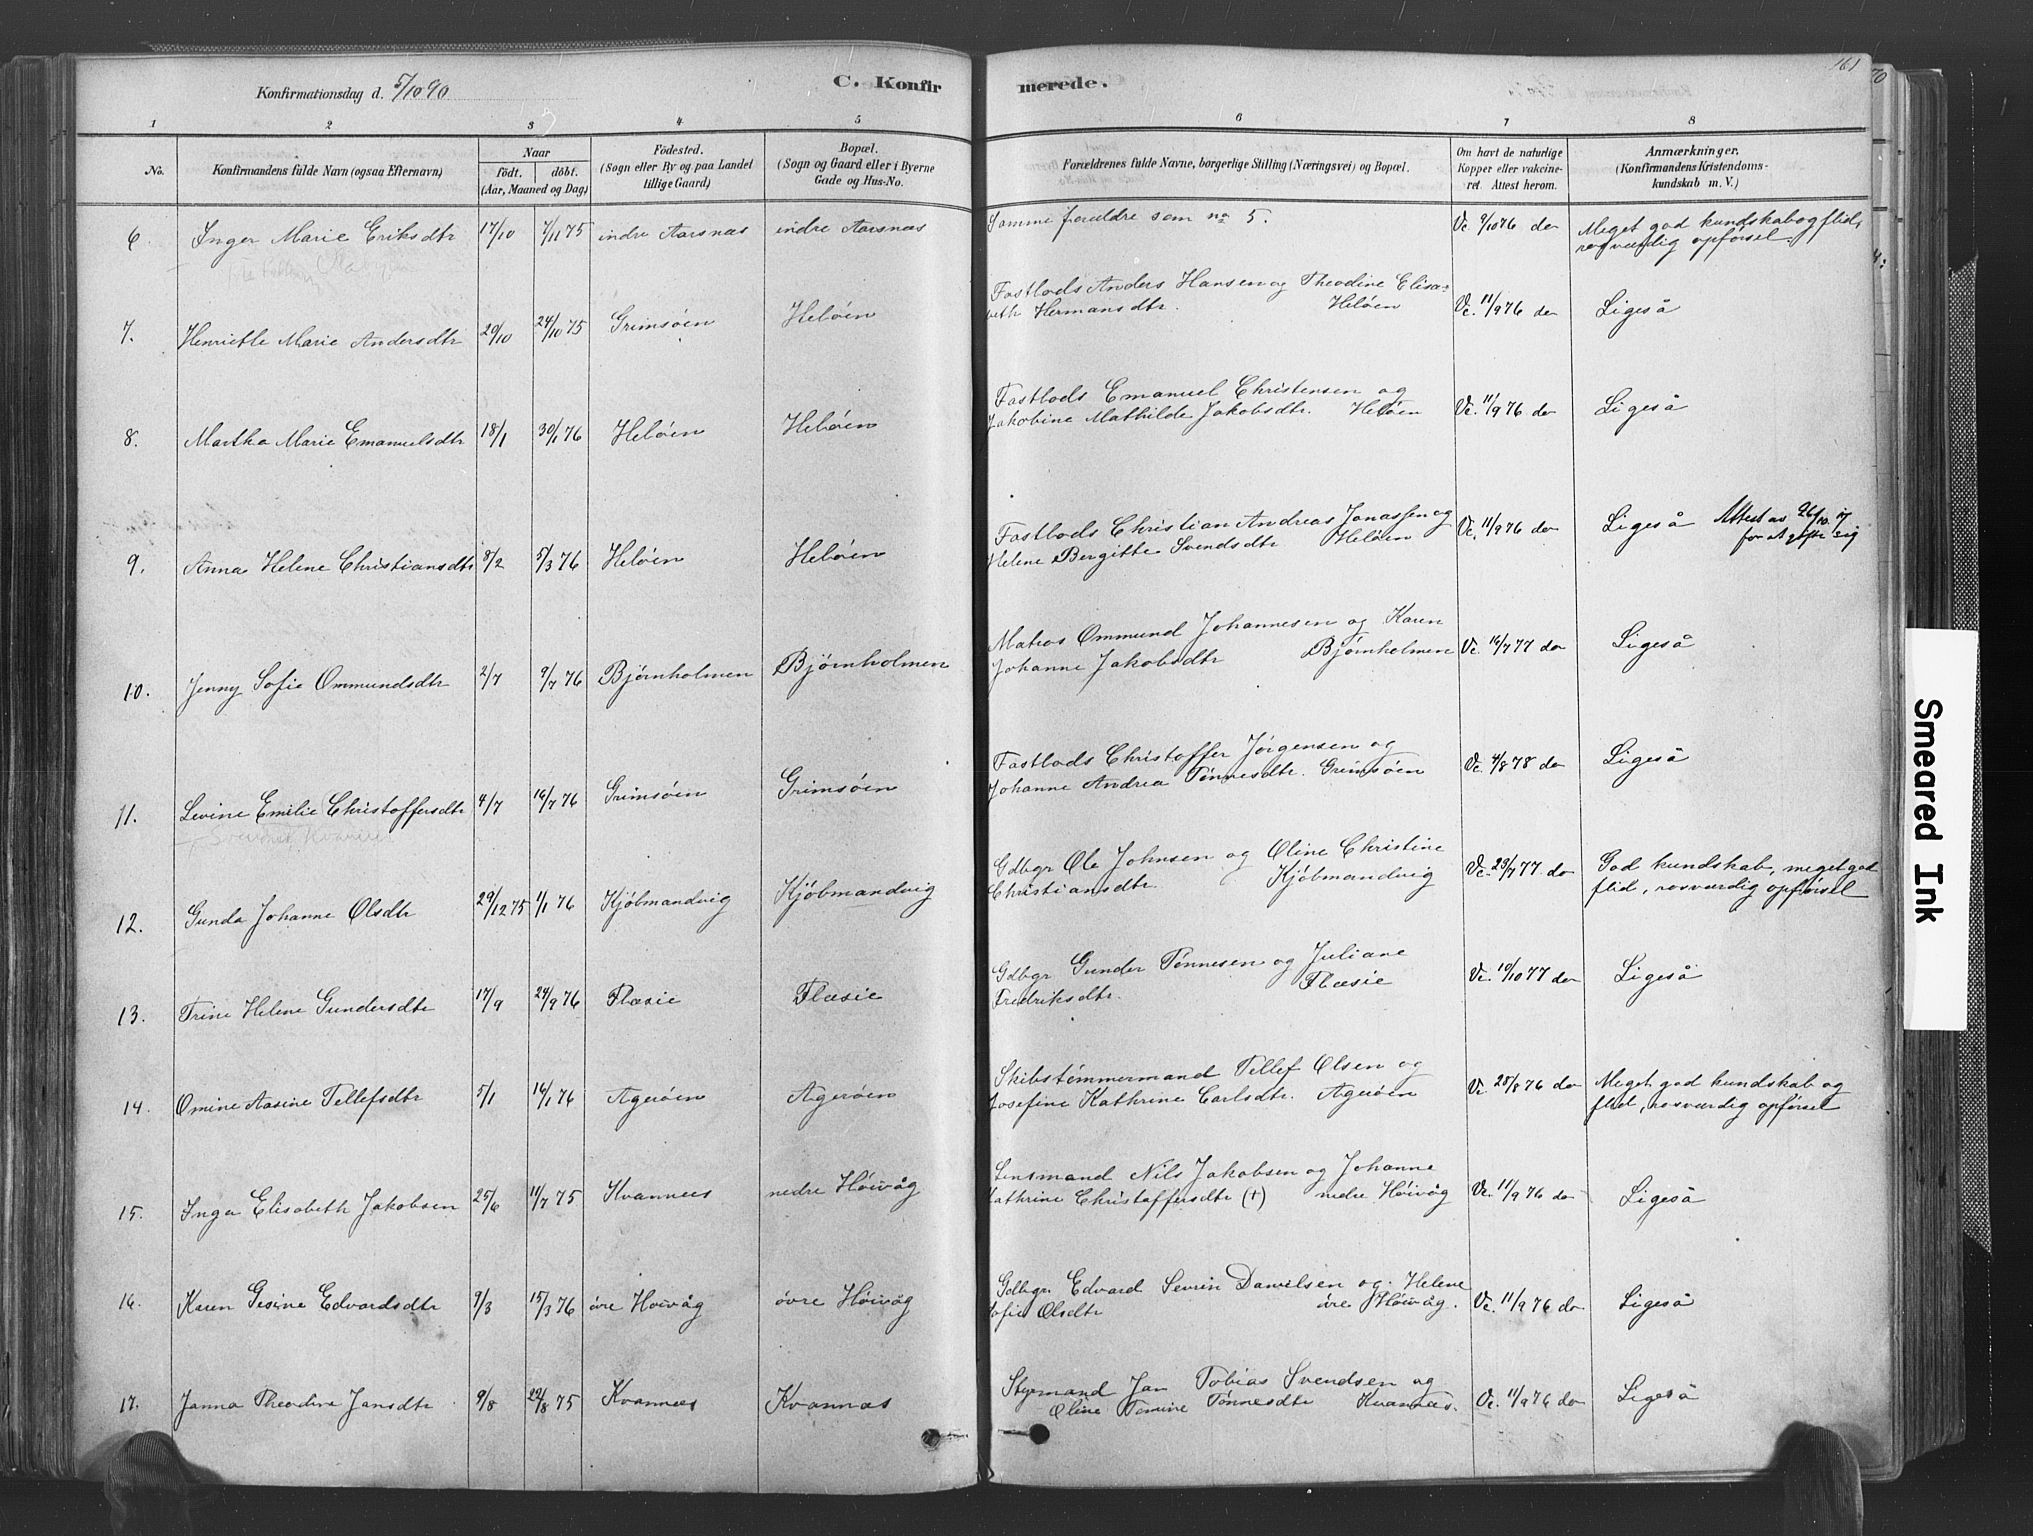 Konfirmationsdag d. 5/10 90
C. Konfirmerede.
161
1 2 3 4 5 6 7 8
No. Konfirmandens fulde Navn (ogsaa Efternavn) Naar født. døbt. (Aar, Maaned og Dag) Födested. (Sogn eller By og paa Landet tillige Gaard) Bopæl. (Sogn og Gaard eller i Byerne Gade og Hus-No. Forældrenes fulde Navne, borgerlige Stilling (Næringsvei) og Bopæl. Om havt de naturlige Kopper eller vakcineret. Attest herom. Anmærkninger. (Konfirmandens Kristendomskundskab m. V.)
6. Inger Marie Eriksdtr 17/10 7/11 75 indre Aarsnæs indre Aarsnæs Samme forældre som no 5. Vc. 9/10 76 do Meget god kundskab og flid,
rosværdig opførsel.
7. Henriette Marie Andersdtr 20/10 24/10 75 Grimsøen Heløen Fastlods Anders Hansen og Theodine Elisa-
beth Hermansdtr. Heløen Vc. 11/9 76 do Ligeså
8. Martha Marie Emanuelsdtr 18/1 30/1 76 Heløen Heløen Fastlods Emanuel Christensen og
Jakobine Mathilde Jakobsdtr. Heløen Vc. 11/9 76 do Ligeså
9. Anna Helene Christiansdtr 8/2 5/3 76 Heløen Heløen Fastlods Christian Andreas Jonassen og
Helene Bergitte Svendsdtr Heløen Vc. 11/9 76 do Ligeså Attest av 26/10 17
for at gifte sig
10. Jenny Sofie Ommundsdtr 2/7 9/7 76 Bjørnholmen Bjørnholmen Matros Ommund Johannesen og Karen
Johanne Jakobsdtr Bjørnholmen Vc. 16/7 77 do Ligeså
11. Levine Emilie Christoffersdtr 4/7 16/7 76 Grimsøen Grimsøen Fastlods Christoffer Jørgensen og
Johanne Andrea Tønnesdtr. Grimsøen Vc. 4/8 78 do Ligeså
12. Gunda Johanne Olsdtr 29/12 75 1/1 76 Kjøbmandvig Kjøbmandvig Gdbgr Ole Johnsen og Oline Christine
Christiansdtr. Kjøbmandvig Vc. 23/7 77 do God kundskab, meget god
flid, rosværdig opførsel
13. Trine Helene Gundersdtr 17/9 24/9 76 Flæsie Flæsie Gdbgr Gunder Tønnesen og Juliane
Fredriksdtr. Flæsie Vc. 10/10 77 do Ligeså
14. Omine Aasine Tellefsdtr 5/1 16/1 76 Agerøen Agerøen Skibstømmermand Tellef Olsen og
Josefine Kathrine Carlsdtr. Agerøen Vc 28/8 76 do Meget god kundskab og
flid, rosværdig opførsel
15. Inga Elisabeth Jakobsen 25/6 11/7 75 Kvannæs nedre Høivåg Lensmand Nils Jakobsen og Johanne
Kathrine Christoffersdtr (†) nedre Høivåg Vc. 11/9 76 do Ligeså
16. Karen Gesine Edvardsdtr 9/3 15/3 76 øvre Høivåg øvre Høivåg Gdbgr. Edvard Sevrin Danielsen og Helene
Sofie Olsdtr øvre Høivåg. Vc. 11/9 76 do Ligeså
17. Janna Theodine Jansdtr 9/8 22/8 75 Kvannæs Kvannæs Styrmand Jan Tobias Svendsen og
Oline Tomine Tønnesdtr Kvannæs. Vc. 11/9 76 do Ligeså
Smeared Ink